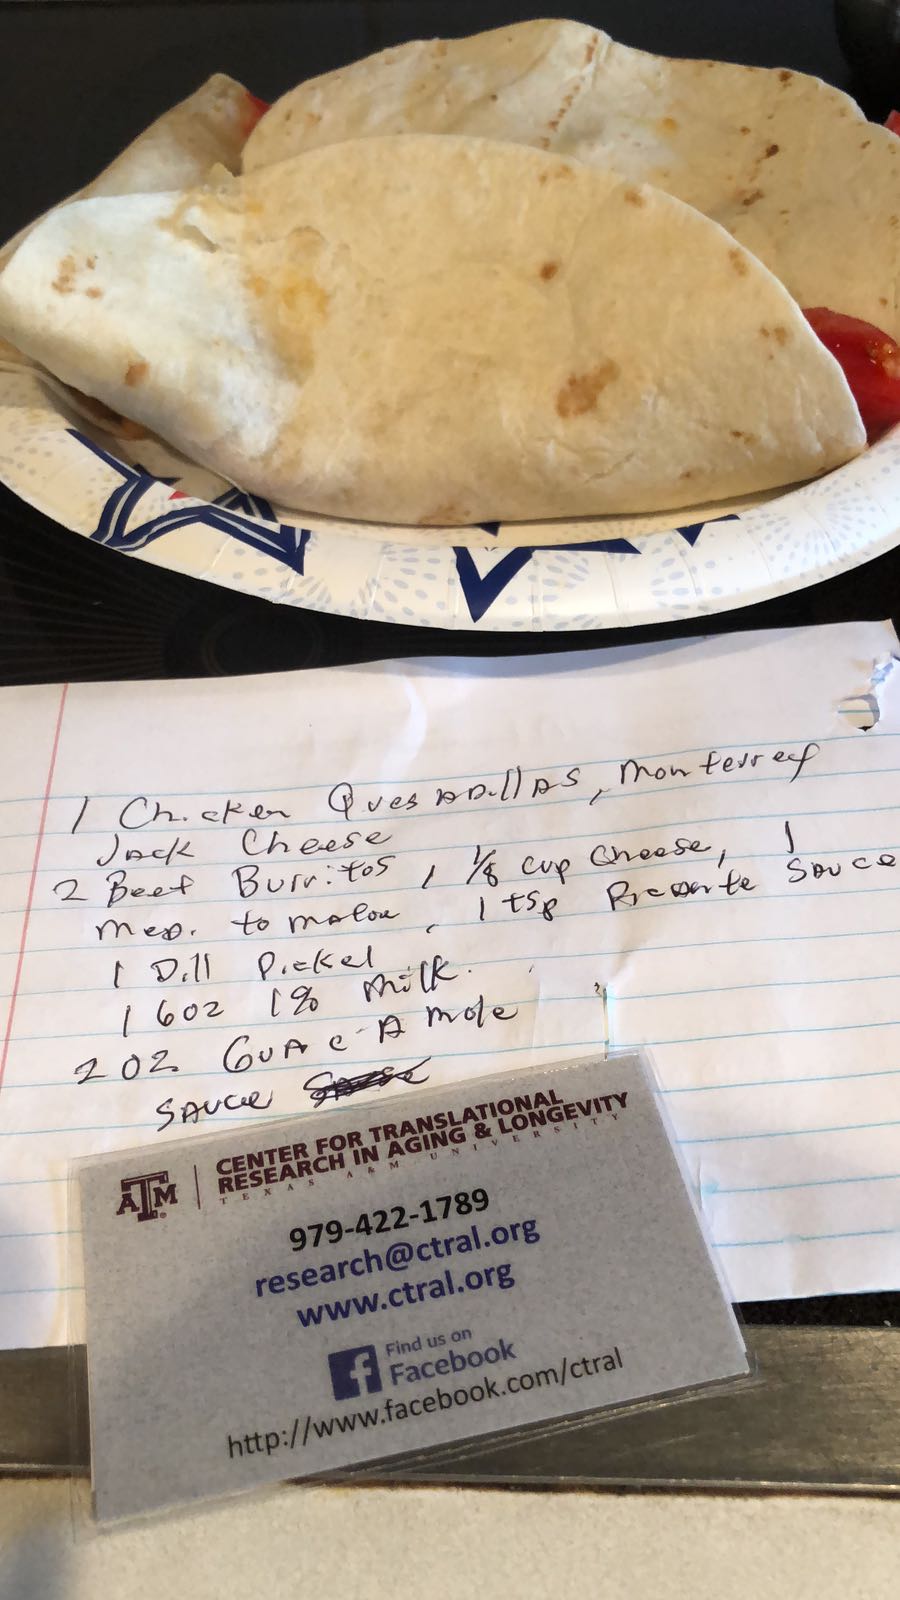 1 Chicken Quesadillas, Monterrey
Jack Cheese
2 Beef Burritos, 1/8 cup Cheese, 1
Med. tomatoe, 1 tsp Piccante Sauce
1 Dill Pickel
1 6oz 1% Milk.
2 oz Guac-A mole
SAUCE
ATM
CENTER FOR TRANSLATIONAL
RESEARCH IN AGING & LONGEVITY
TEXAS A&M UNIVERSITY
979-422-1789
research@ctral.org
www.ctral.org
f Find us on
Facebook
http://www.facebook.com/ctral